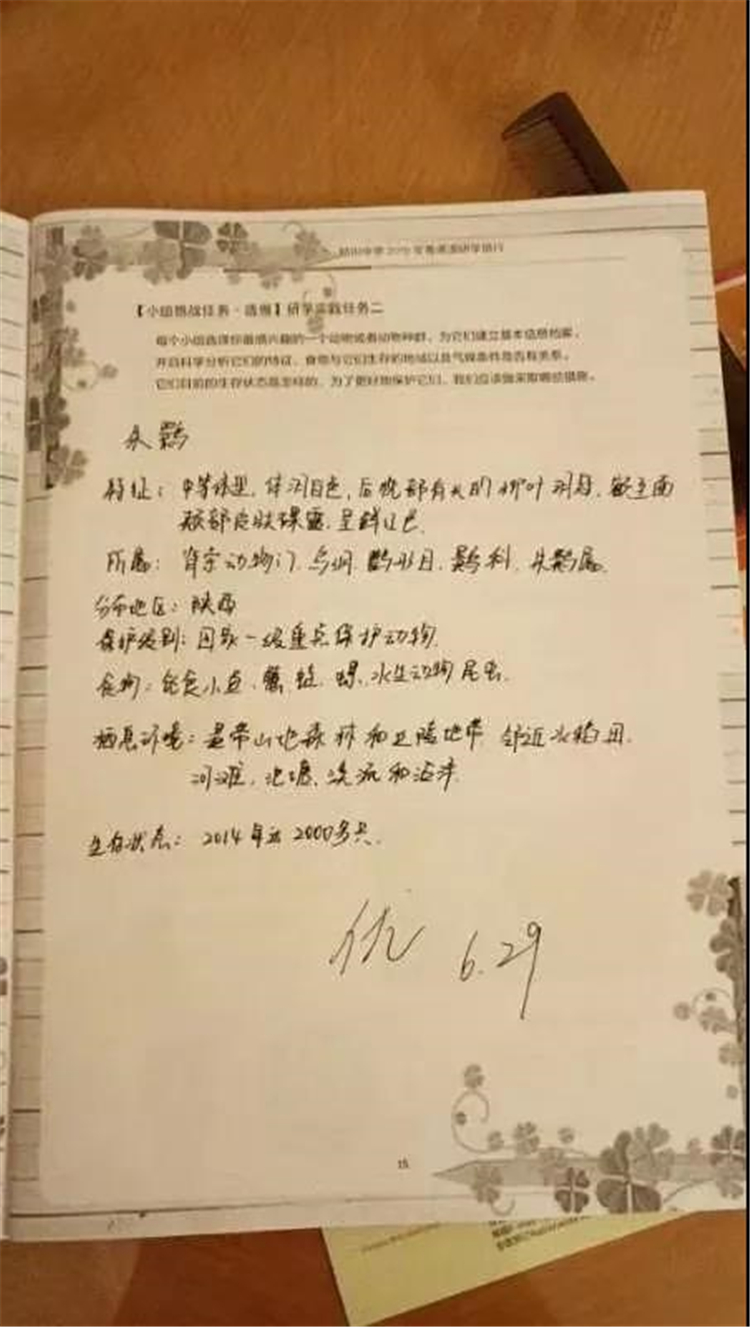 【小组挑战任务·选做】研学实践任务二
每个小组选择你最感兴趣的一个动物或者动物种群，为它们建立基本信息档案。
并且科学分析它们的特征、食物与它们生存的地域以及气候条件是否有关系。
它们目前的生存状态是怎样的，为了更好地保护它们，我们应该做采取哪些措施。
朱鹮
特征：中等体型，体羽白色，后枕部有长的柳叶羽冠，额至面
颊部皮肤裸露，呈鲜红色
所属：脊索动物门、鸟纲、鹳形目、鹮科、朱鹮属
分布地区：陕西
保护级别：国家一级重点保护动物
食物：能食小鱼、蟹、蛙、螺、水生动物昆虫
栖息环境：温带山地森林和丘陵地带 邻近水稻田、
河滩、池塘、溪流和沼泽
生存状态：2014年达2000多只.
优 6.29
15